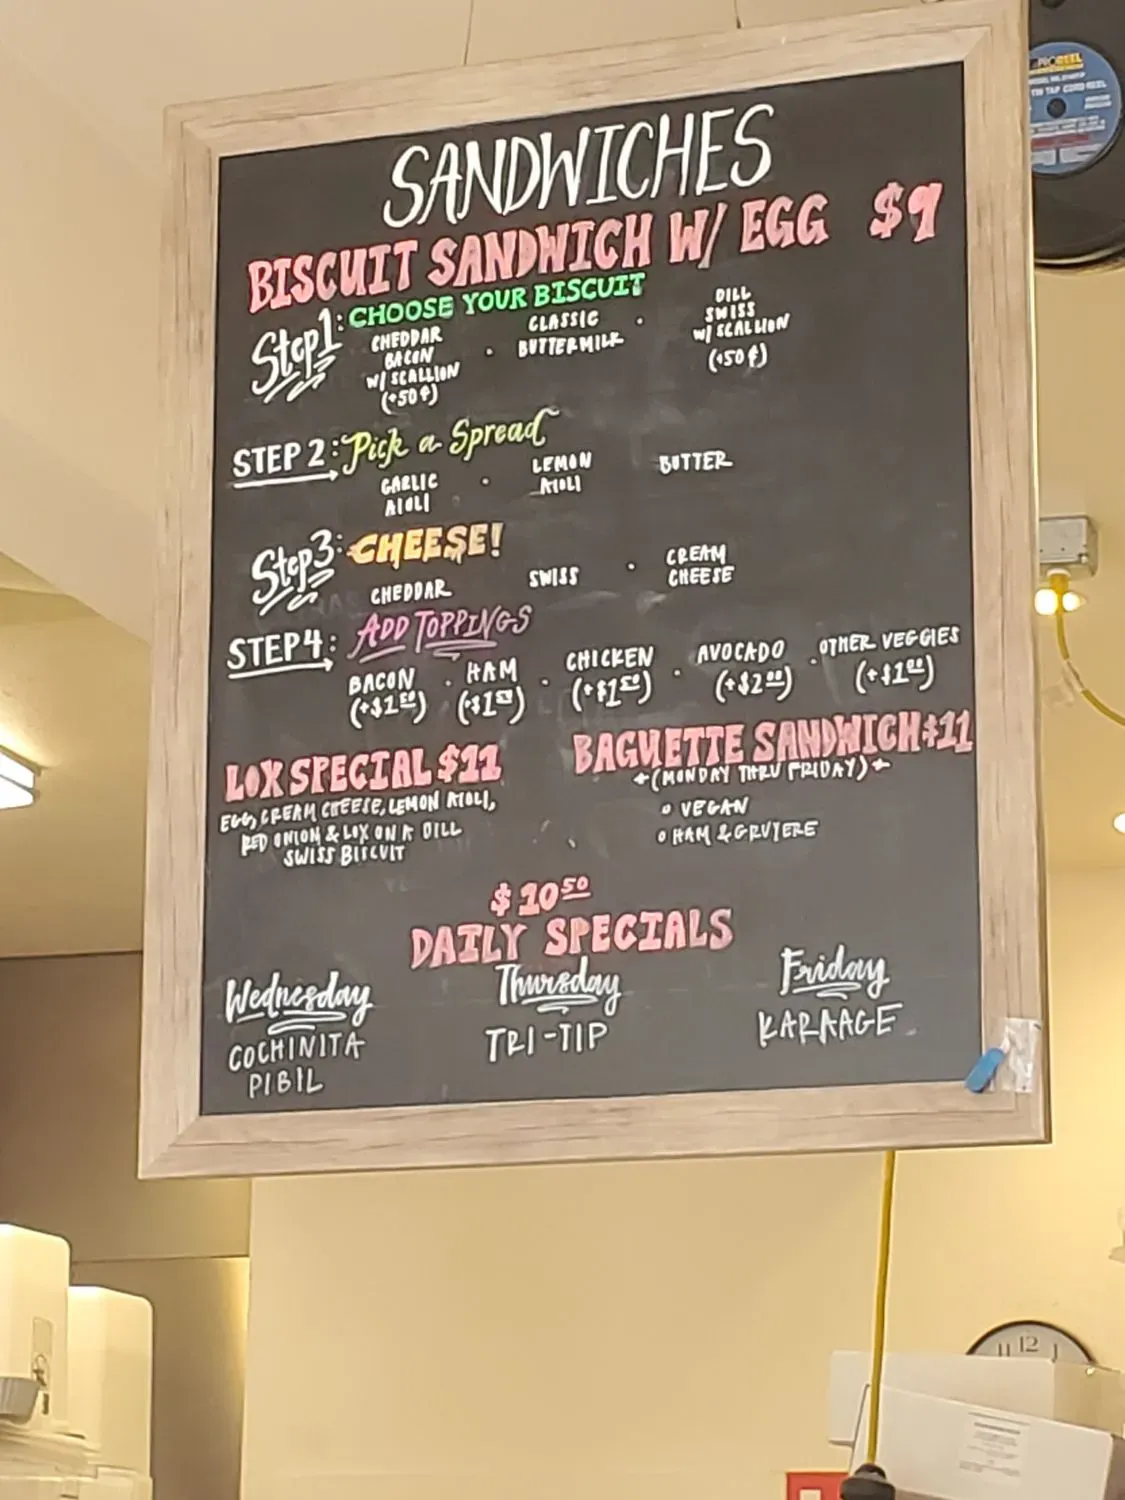 SANDWICHES
BISCUIT SANDWICH W/ EGG $9
Step1: CHOOSE YOUR BISCUIT
CHEDDAR
BACON
W/ SCALLION
(+50¢)
·
CLASSIC
BUTTERMILK
·
DILL
SWISS
W/ SCALLION
(+50¢)
STEP 2: Pick a Spread
GARLIC
AIOLI
·
LEMON
AIOLI
BUTTER
Step3: CHEESE!
CHEDDAR
SWISS
·
CREAM
CHEESE
STEP4: ADD TOPPINGS
BACON
(+$1.50)
· HAM
(+$1.50)
· CHICKEN
(+$1.50)
· AVOCADO
(+$2.00)
· OTHER VEGGIES
(+$1.00)
LOX SPECIAL $11
EGG, CREAM CHEESE, LEMON AIOLI,
RED ONION & LOX ON A DILL
SWISS BISCUIT
BAGUETTE SANDWICH $11
(MONDAY THRU FRIDAY)
○ VEGAN
○ HAM & GRUYERE
$10.50
DAILY SPECIALS
Wednesday
COCHINITA
PIBIL
Thursday
TRI-TIP
Friday
KARAAGE
11 12 1